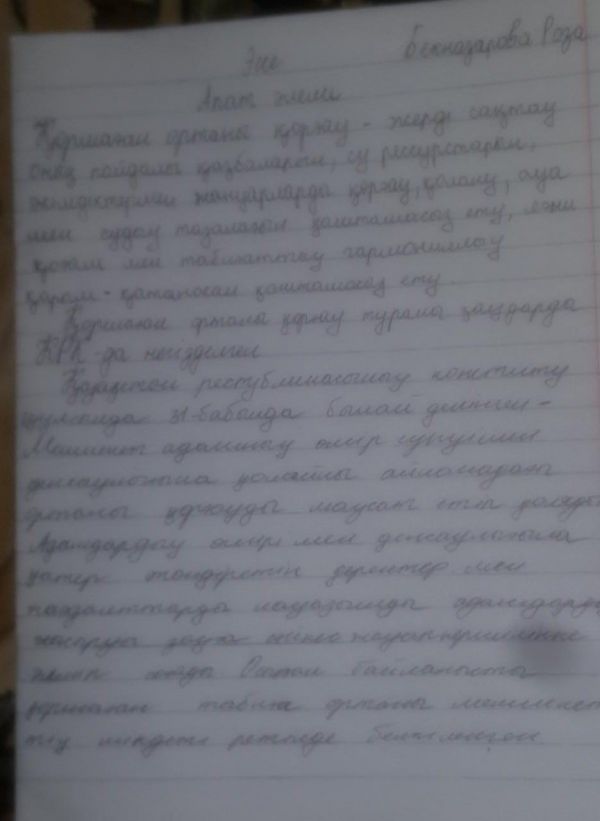 Эие Бекназарова Роза
Апат жеми
Қоршаған ортаны қорғау - жерді сақтау
оның пайдалы қазбаларын, су рессурстарын,
өсімдіктермен жануарларды қорғау, қолану, ауа
мен судың тазалағын қамтамасыз ету, яғни
қоғам мен табиғаттың гармониялық
қарым-қатынасын қамтамасыз ету.
Қоршаған ортаны қорғау туралы заңдарда
ҚРК-да негізделген
Қазақстан республикасының конститу
31-бабында былай делінген -
Мемлекет адамның өмір сүруімен
денсаулығына қолайлы айналадағы
ортаны қорғауды мақсат етіп қояды
Адамдардың өмірі мен денсаулығына
қатер төндіретін деректер мен
лауазымды адамдарды
жасыруы заңға сәйкес
Осыған байланысты
қоршаған табиғи ортаны мемлекет
тің міндеті ретінде белгіленген